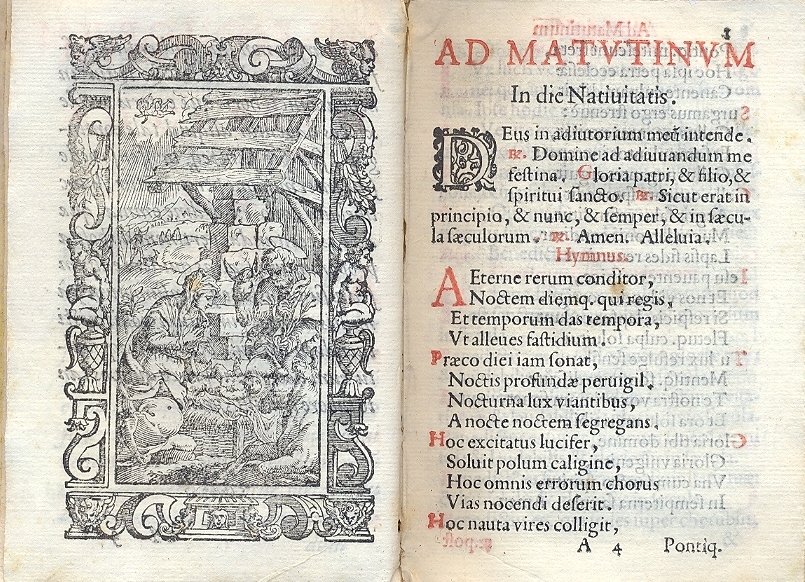 1
AD MATVTINVM
In die Natiuitatis.
DEus in adiutorium meũ intende.
℟. Domine ad adiuuandum me
festina. Gloria patri, & filio, &
spiritui sancto. ℟. Sicut erat in
principio, & nunc, & semper, & in sæcu-
la sæculorum. ℟. Amen. Alleluia.
Hymnus.
AEterne rerum conditor,
Noctem diemq. qui regis,
Et temporum das tempora,
Vt alleues fastidium.
Præco diei iam sonat,
Noctis profundæ peruigil,
Nocturna lux viantibus,
A nocte noctem segregans.
Hoc excitatus lucifer,
Soluit polum caligine,
Hoc omnis errorum chorus
Vias nocendi deserit.
Hoc nauta vires colligit,
A 4 Pontiq.